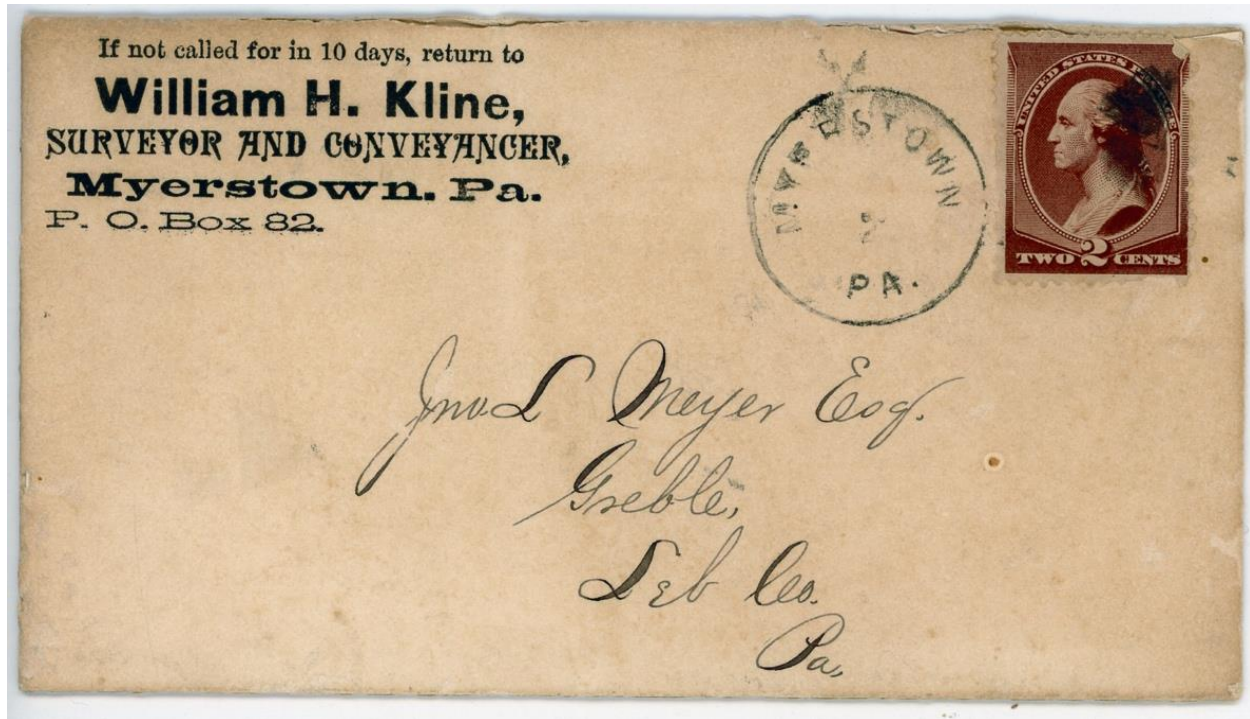 If not called for in 10 days, return to
William H. Kline,
SURVEYOR AND CONVEYANCER,
Myerstown. Pa.
P. O. Box 82.
MYERSTOWN
PA.
UNITED STATES POSTAGE
TWO 2 CENTS
Jno. L Meyer Esq.
Greble,
Leb Co.
Pa,